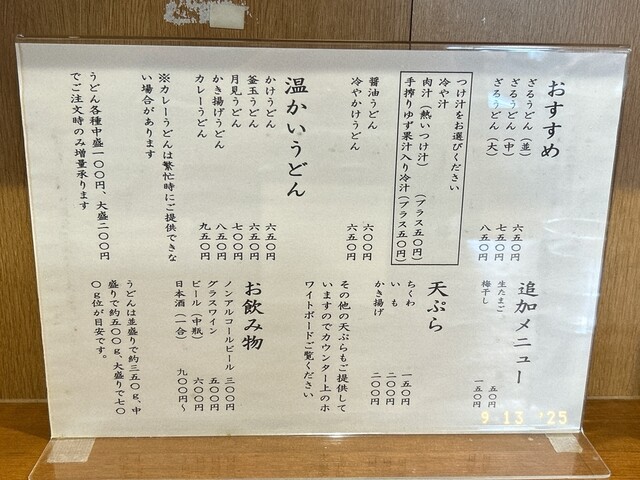 おすすめ
ざるうどん（並） 六五〇円
ざるうどん（中） 七五〇円
ざるうどん（大） 八五〇円
つけ汁をお選びください
冷や汁
肉汁（熱いつけ汁） （プラス五〇円）
手搾りゆず果汁入り冷汁（プラス五〇円）
醤油うどん 六〇〇円
冷やかけうどん 六五〇円
温かいうどん
かけうどん 六五〇円
釜玉うどん 六五〇円
月見うどん 七〇〇円
かき揚げうどん 八五〇円
カレーうどん 九五〇円
※カレーうどんは繁忙時にご提供できな
い場合があります
うどん各種中盛一〇〇円、大盛二〇〇円
でご注文時のみ増量承ります
追加メニュー
生たまご 五〇円
梅干し 一五〇円
天ぷら
ちくわ 一五〇円
いも 二〇〇円
かき揚げ 二〇〇円
その他の天ぷらもご提供して
いますのでカウンター上のホ
ワイトボードご覧ください
お飲み物
ノンアルコールビール 三〇〇円
グラスワイン 五〇〇円
ビール（中瓶） 六〇〇円
日本酒（一合） 九〇〇円～
うどんは並盛りで約三五〇g、中
盛りで約五〇〇g、大盛りで七〇
〇g位が目安です。
9 13 '25